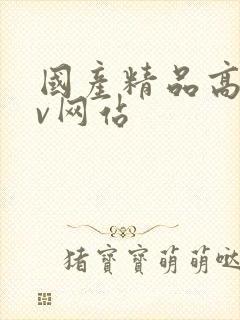 國產精品高
v网佔
猪寶寶萌萌哒